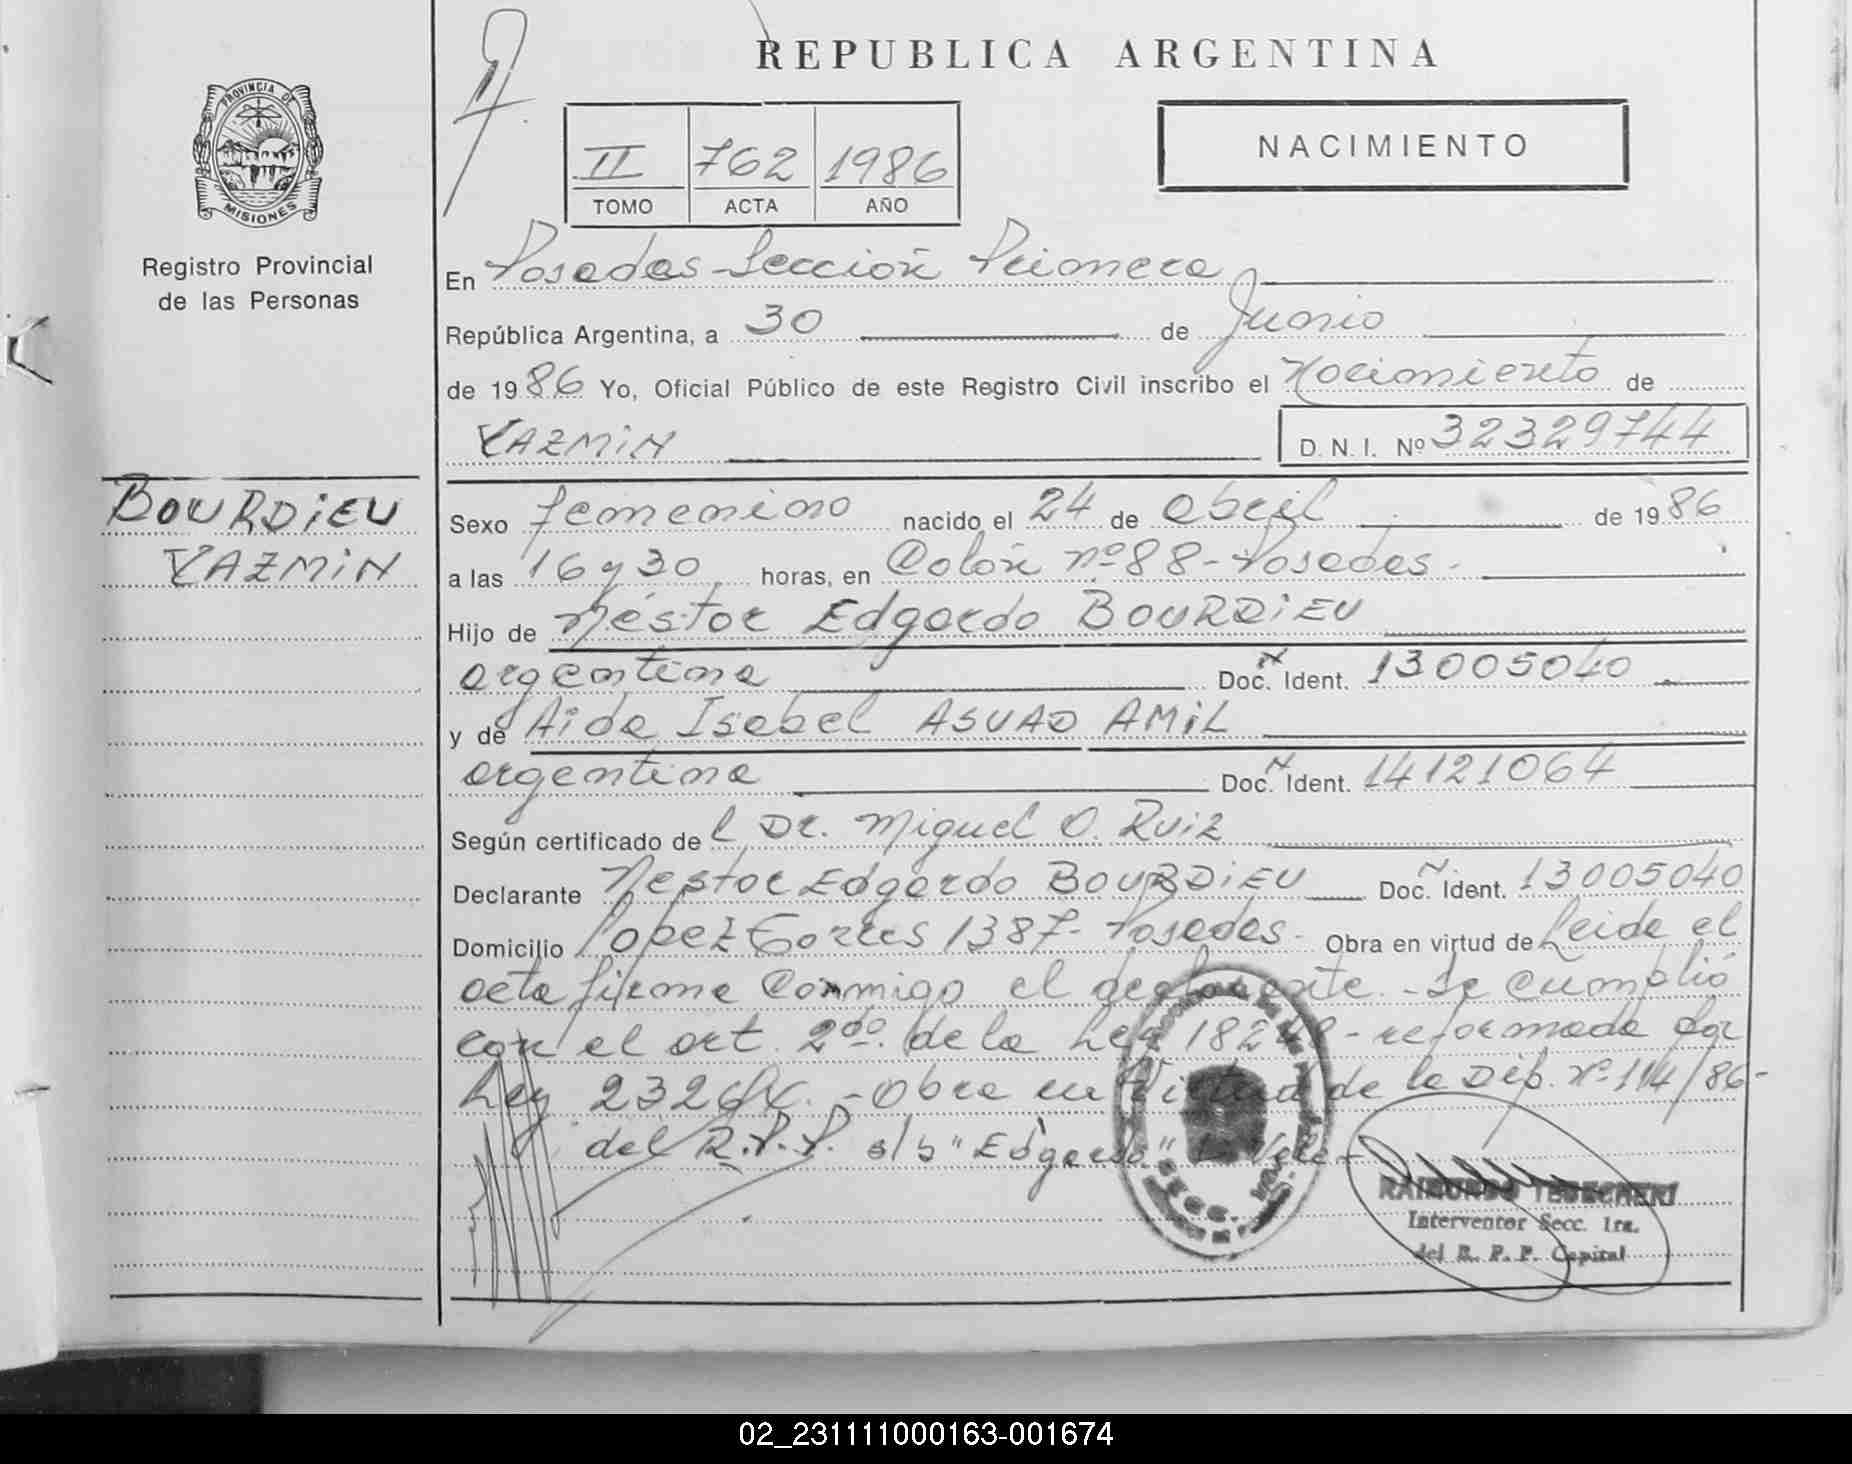 REPUBLICA ARGENTINA
PROVINCIA DE
MISIONES
Registro Provincial
de las Personas
II 762 1986
TOMO ACTA AÑO
NACIMIENTO
En Posadas - Sección Primera
República Argentina, a 30 de Junio
de 1986 Yo, Oficial Público de este Registro Civil inscribo el Nacimiento de
YAZMIN D. N. I. Nº 32329744
BOURDIEU
YAZMIN
Sexo femenino nacido el 24 de abril de 1986
a las 16 y 30 horas, en Colón nº 88 - Posadas -
Hijo de Néstor Edgardo BOURDIEU
argentina Doc. N Ident. 13005040
y de Aida Isabel ASUAD AMIL
argentina Doc. N Ident. 14121064
Según certificado de l Dr. Miguel O. Ruiz
Declarante Nestor Edgardo BOURDIEU Doc. N Ident. 13005040
Domicilio Lopez Torres 1387 - Posadas - Obra en virtud de Leida el
acta firma conmigo el declarante. - Se cumplió
con el art. 2do. de la Ley 18248 - reformada por
Ley 23264. - Obra en Virtud de la Disp. Nº 114/86 -
del R.P.P. s/b "Edgardo" Vale -
RAIMUNDO TEDECHERI
Interventor Secc. 1ra.
del R. P. P. Capital
02_231111000163-001674